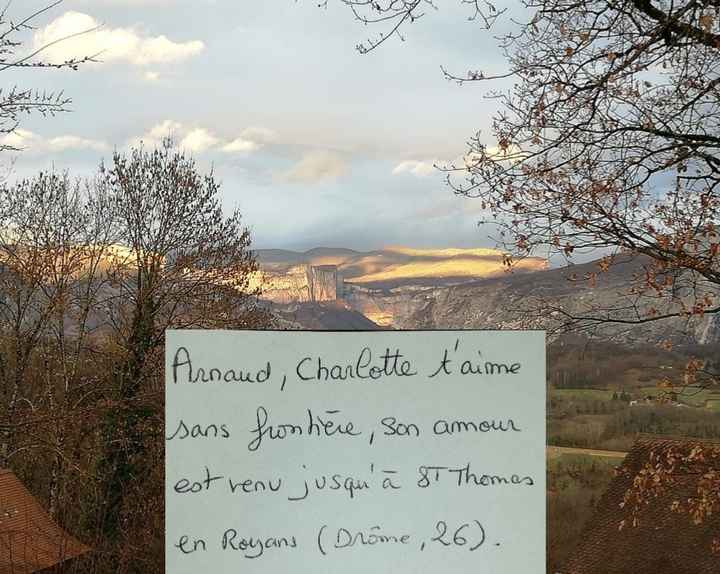 Arnaud, Charlotte t'aime
sans frontière, son amour
est venu jusqu'à ST Thomas
en Royans (Drôme, 26).